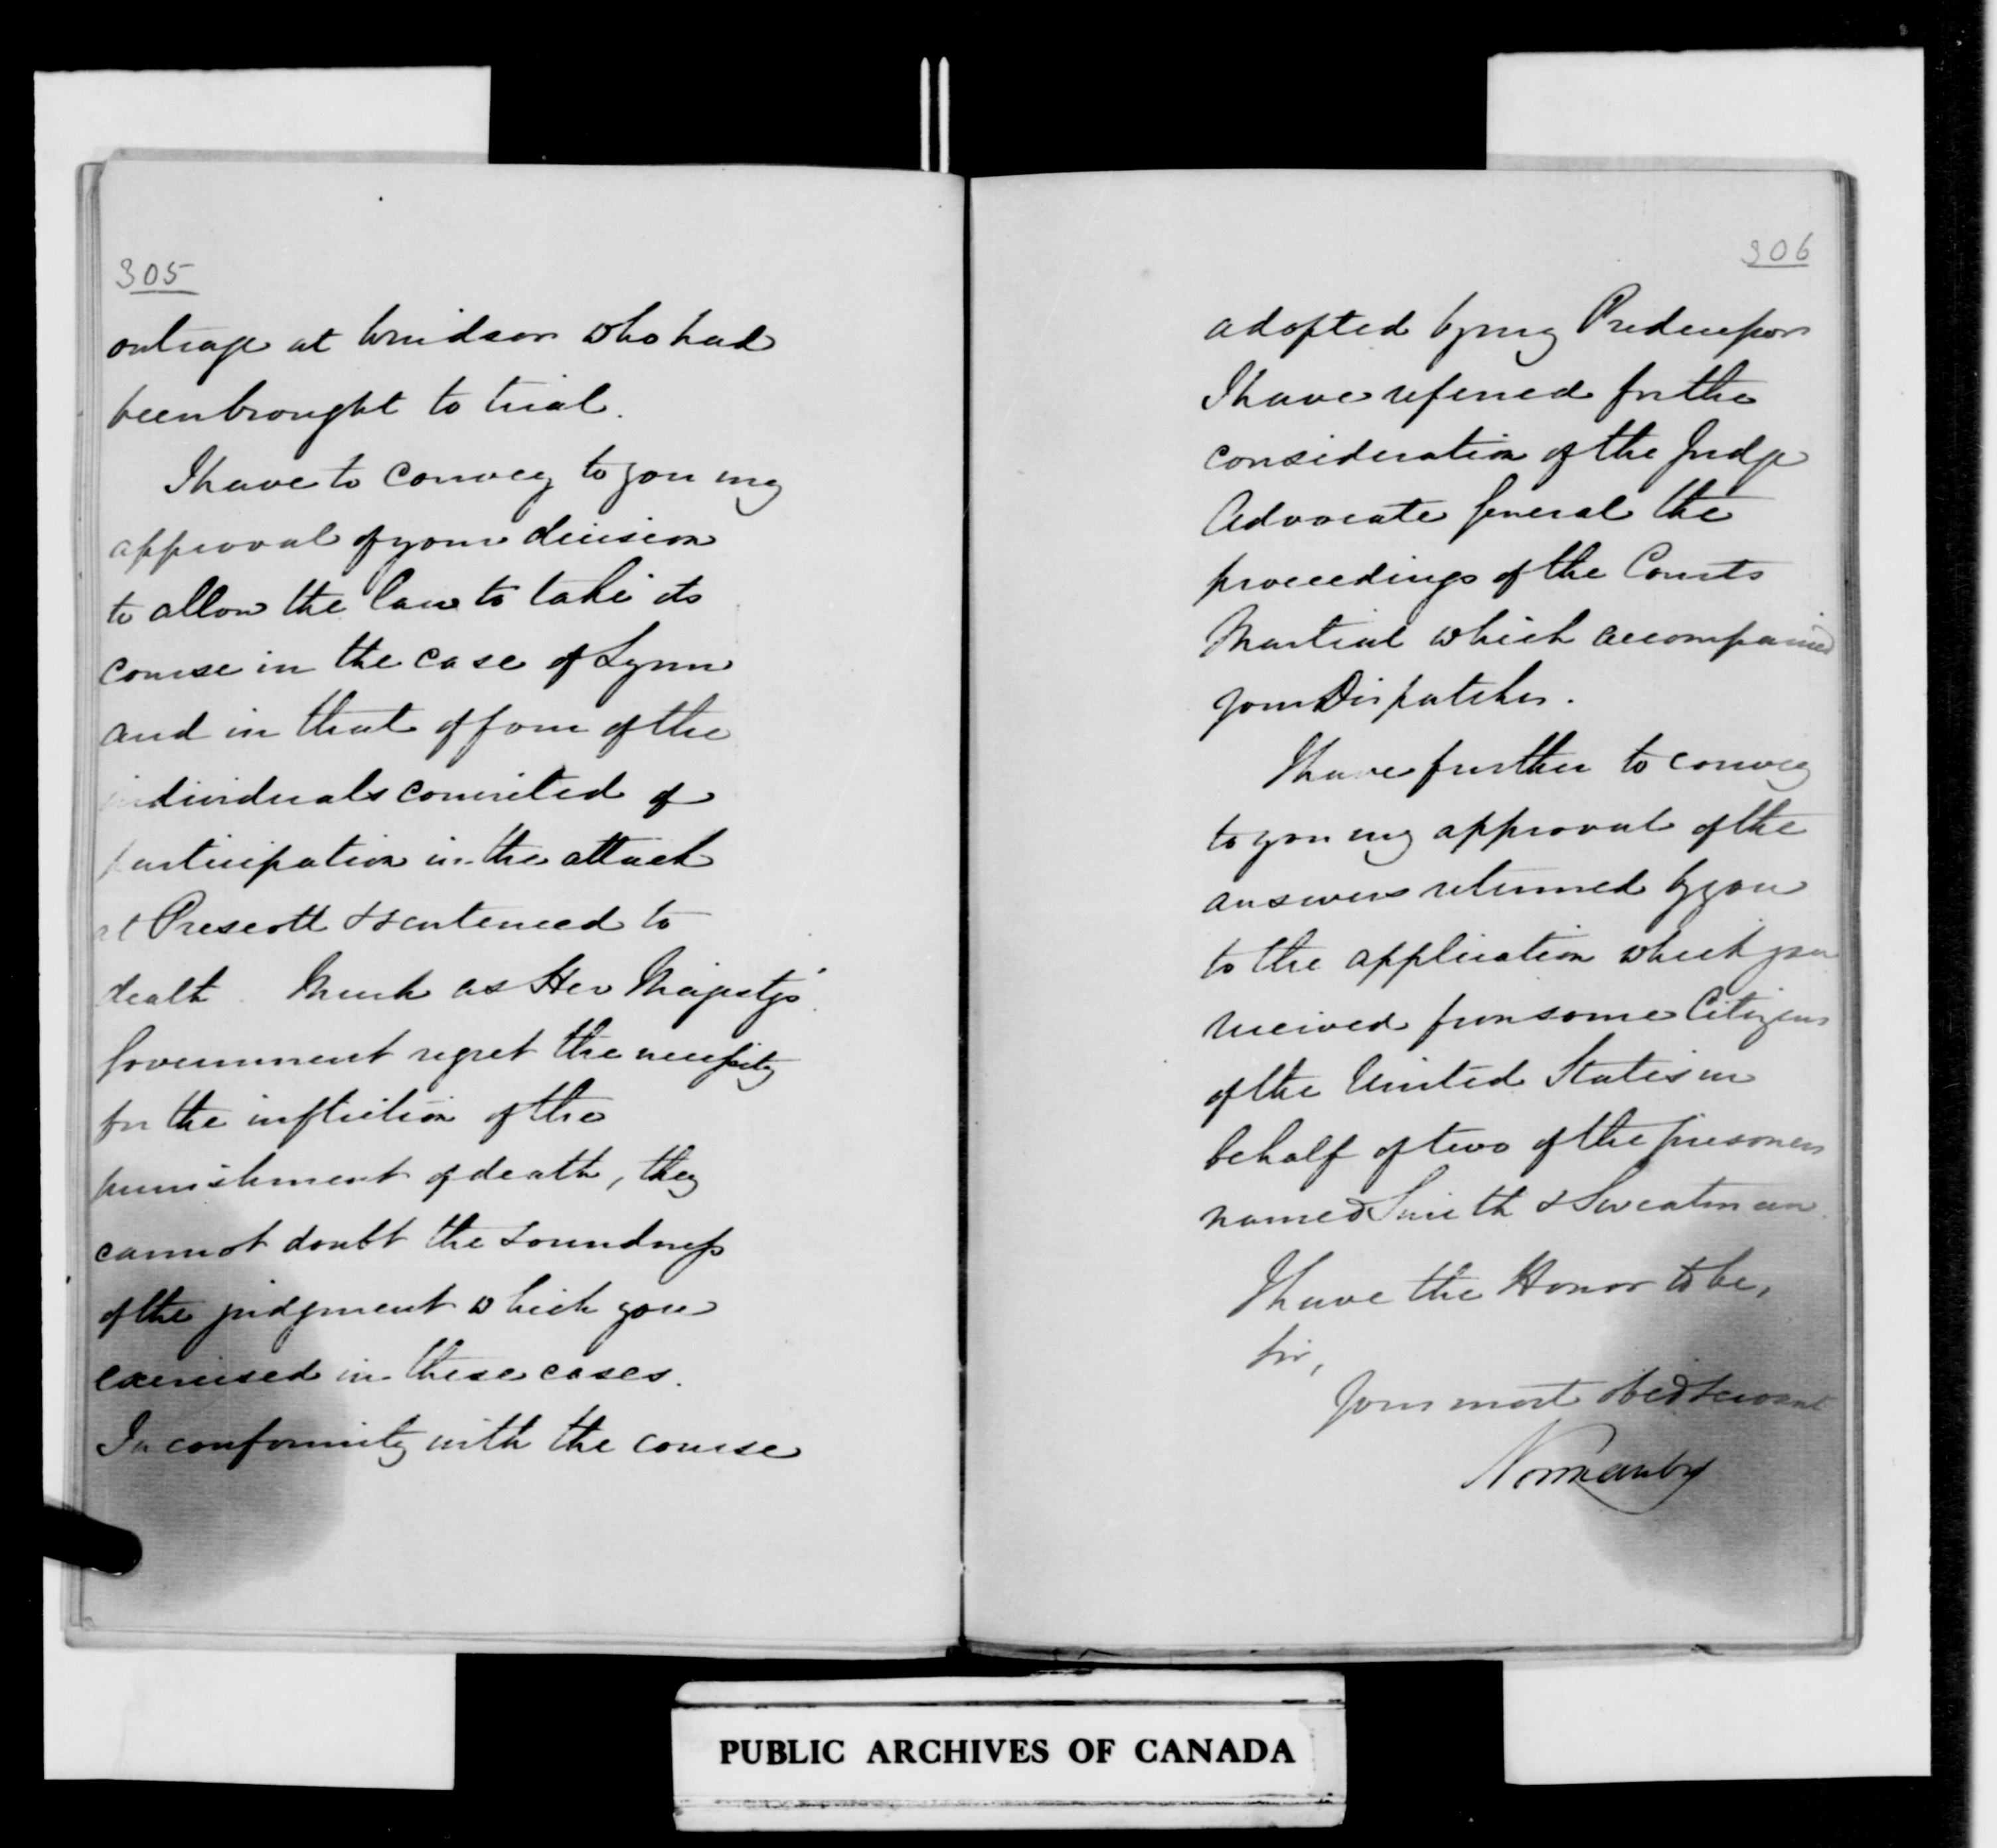 305
outrage at Windsor who had
been brought to trial.
I have to convey to you my
approval of your decision
to allow the law to take its
course in the case of Lynn
and in that of four of the
individuals convicted of
participation in the attack
at Prescott & sentenced to
death. Much as Her Majesty's
Government regret the necessity
for the infliction of the
punishment of death, they
cannot doubt the soundness
of the judgment which you
exercised in these cases.
In conformity with the course
306
adopted by my Predecessor
I have referred for the
consideration of the Judge
Advocate General the
proceedings of the Courts
Martial which accompanied
your Dispatches.
I have further to convey
to you my approval of the
answers returned by you
to the application which you
received from some Citizens
of the United States in
behalf of two of the prisoners
named Smith & Sweatman.
I have the Honor to be,
Sir,
Your most obedt servant
Normanby
PUBLIC ARCHIVES OF CANADA